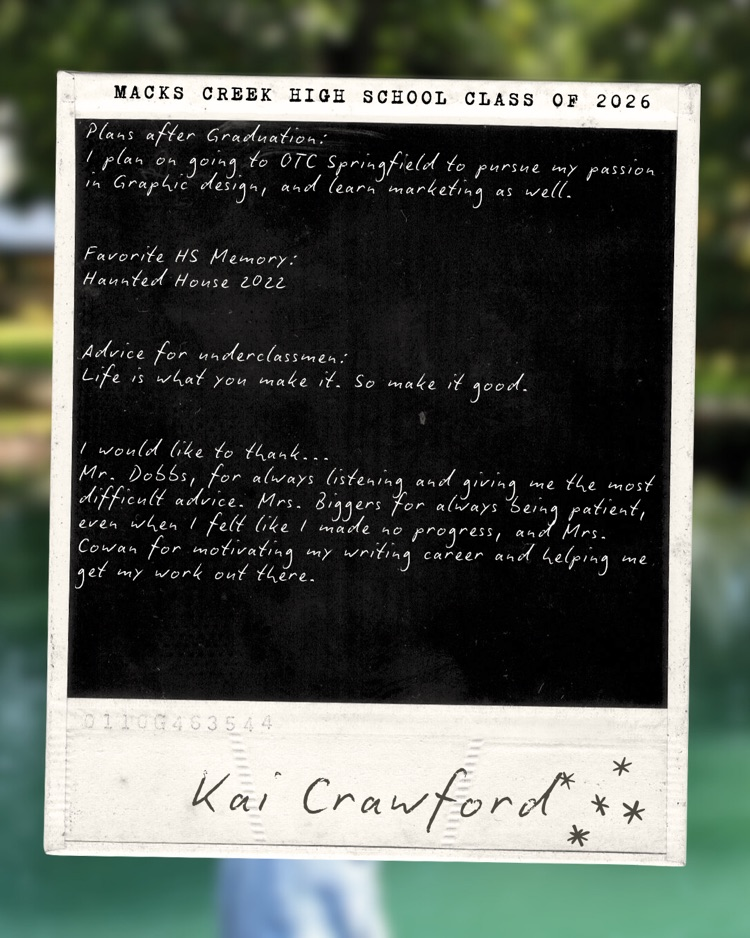 MACKS CREEK HIGH SCHOOL CLASS OF 2026
Plans after Graduation:
I plan on going to OTC Springfield to pursue my passion
in Graphic design, and learn marketing as well.
Favorite HS Memory:
Haunted House 2022
Advice for underclassmen:
Life is what you make it. So make it good.
I would like to thank...
Mr. Dobbs, for always listening and giving me the most
difficult advice. Mrs. Biggers for always being patient,
even when I felt like I made no progress, and Mrs.
Cowan for motivating my writing career and helping me
get my work out there.
0110G463544
Kai Crawford